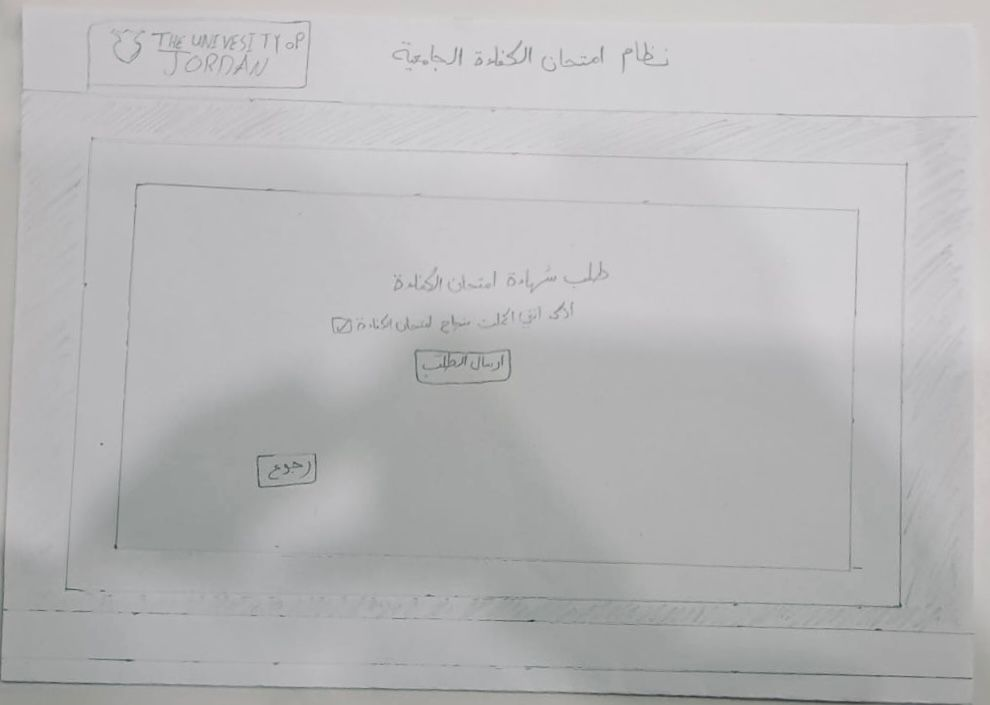 THE UNIVESITY OF
JORDAN
نظام امتحان الكفاءة الجامعية
طلب شهادة امتحان الكفاءة
أؤكد انني اكملت بنجاح امتحان الكفاءة
ارسال الطلب
رجوع